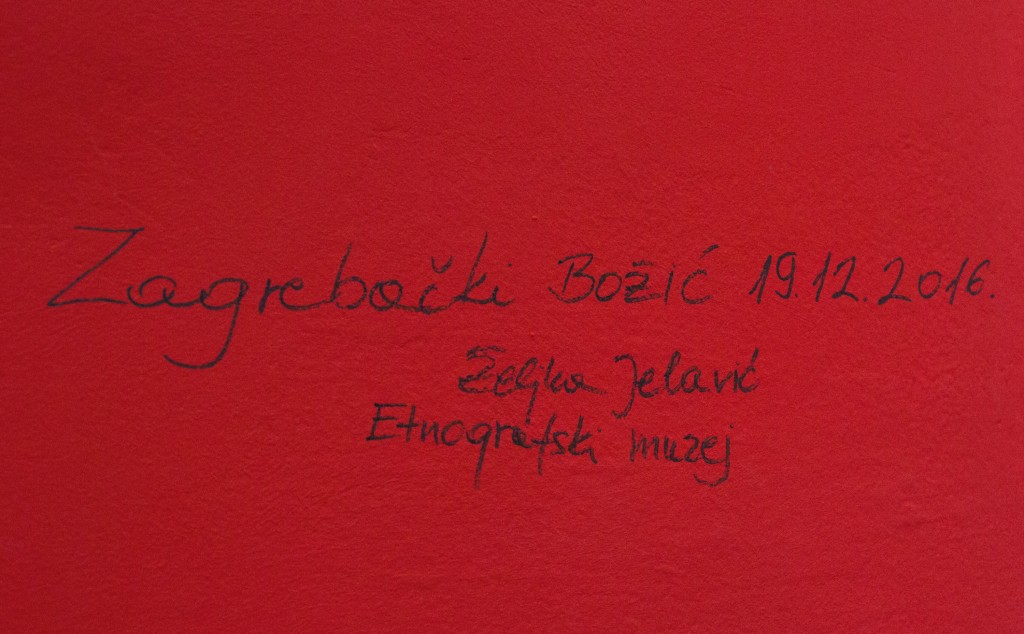 Zagrebački Božić 19.12.2016.
Željka Jelavić
Etnografski muzej